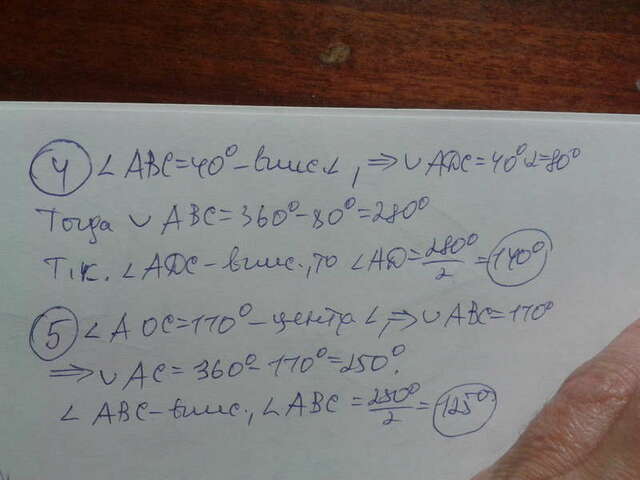 4 ∠ABC=40°–впис.∠, ⇒ ∪ADC=40°·2=80°
Тогда ∪ ABC=360°-80°=280°
Т.к. ∠ADC–впис., то ∠AD=280°/2=140°
5 ∠AOC=110°–центр ∠, ⇒ ∪ABC=110°
⇒ ∪AC=360°-110°=250°.
∠ABC–впис., ∠ABC=250°/2=125°